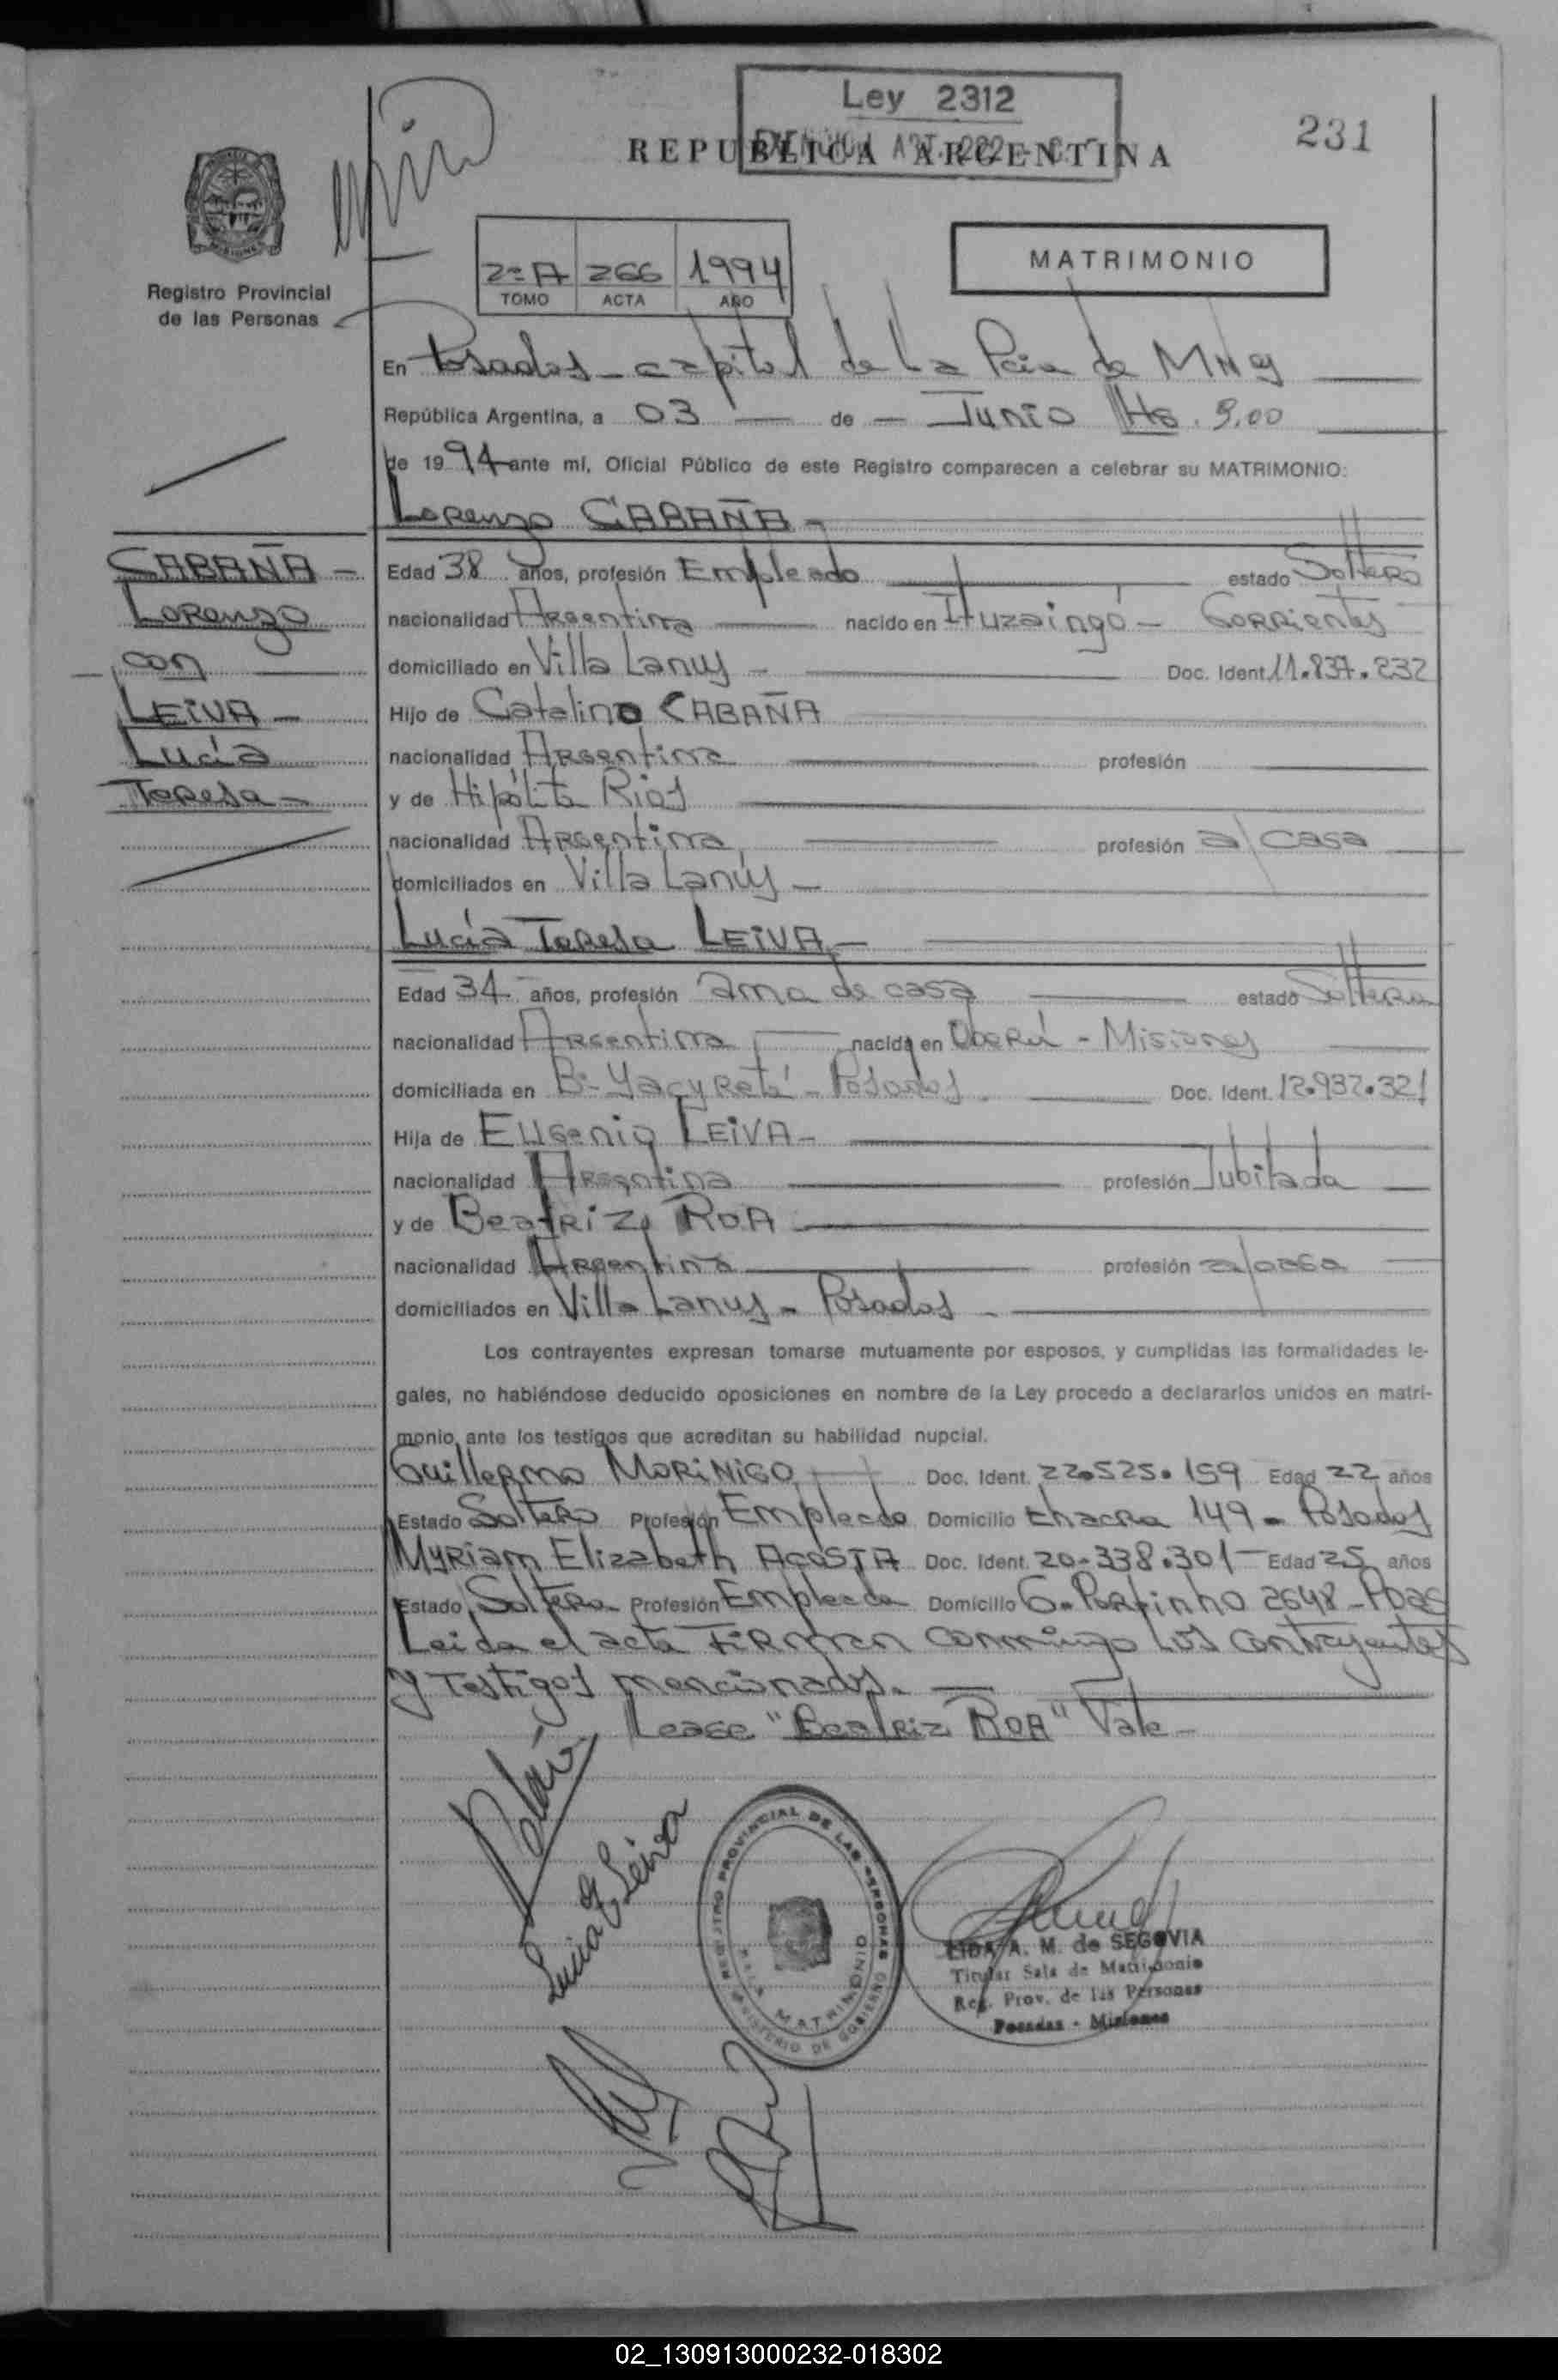 Ley 2312
REPUBLICA ARGENTINA
231
Registro Provincial
de las Personas
2º A 266 1994
TOMO ACTA AÑO
MATRIMONIO
En Posadas - capital de La Pcia de Mnes
República Argentina, a 03 de Junio Hs. 9,00
de 1994 ante mí, Oficial Público de este Registro comparecen a celebrar su MATRIMONIO:
Lorenzo CABAÑA -
CABAÑA -
Lorenzo
con
LEIVA -
Lucía
Teresa -
Edad 38 años, profesión Empleado estado Soltero
nacionalidad Argentina nacido en Ituzaingó - Corrientes
domiciliado en Villa Lanus - Doc. Ident. 11.837.232
Hijo de Catalino CABAÑA
nacionalidad Argentina profesión
y de Hipólita Rios
nacionalidad Argentina profesión a/casa
domiciliados en Villa Lanús -
Lucía Teresa LEIVA -
Edad 34 años, profesión ama de casa estado Soltera
nacionalidad Argentina nacida en Oberá - Misiones
domiciliada en Bº Yacyretá - Posadas Doc. Ident. 12.937.321
Hija de Eugenio LEIVA -
nacionalidad Argentina profesión Jubilada
y de Beatriz ROA
nacionalidad Argentina profesión a/casa
domiciliados en Villa Lanus - Posadas -
Los contrayentes expresan tomarse mutuamente por esposos, y cumplidas las formalidades le-
gales, no habiéndose deducido oposiciones en nombre de la Ley procedo a declararlos unidos en matri-
monio ante los testigos que acreditan su habilidad nupcial.
Guillermo MORINIGO Doc. Ident. 22.525.159 Edad 22 años
Estado Soltero Profesión Empleado Domicilio Chacra 149 - Posadas
Myriam Elizabeth ACOSTA Doc. Ident. 20.338.301 - Edad 25 años
Estado Soltera Profesión Empleada Domicilio G. Porfinho 2648 - Pdas
Leida el acta Firman conmigo Los contrayentes
y Testigos mencionados. -
Lease "Beatriz ROA" Vale -
Lucia T. Leiva
REGISTRO PROVINCIAL DE LAS PERSONAS
SALA MATRIMONIO
MINISTERIO DE GOBIERNO
LIDA A. M. de SEGOVIA
Titular Sala de Matrimonio
Reg. Prov. de las Personas
Posadas - Misiones
02_130913000232-018302